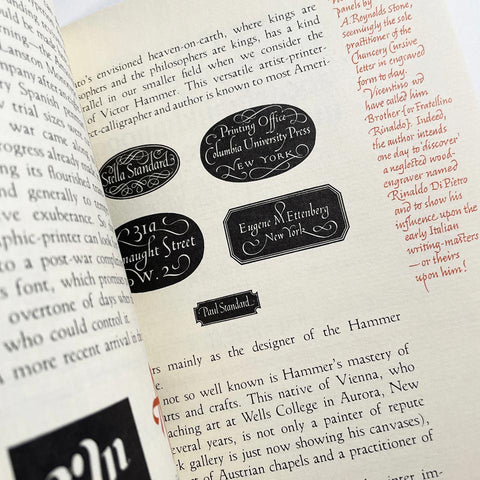 uld be
nown—the
Lanston Mono
mpany after ano
y Spanish
trial sizes wer
war came alon
progress already mad
ing its flourished re
and generally to ten
ive exuberance. Suc
aphic-printer can look
to a post-war comple
s font, which promises
overtone of days when
who could control it.
more recent arrival in the
to's envisioned heaven-on-earth, where kings are
ophers and the philosophers are kings, has a kind
rallel in our smaller field when we consider the
of Victor Hammer. This versatile artist-printer-
ct-calligrapher and author is known to most Ameri-
Stella Standard
Printing Office
Columbia University Press
NEW YORK
31a
naught Street
W. 2
Eugene M. Ettenberg
New York
Paul Standard
rs mainly as the designer of the Hammer
e.
not so well known is Hammer's mastery of
arts and crafts. This native of Vienna, who
aching art at Wells College in Aurora, New
several years, is not only a painter of repute
k gallery is just now showing his canvases),
er of Austrian chapels and a practitioner of
inter im-
panels by
A. Reynolds Stone,
seemingly the sole
practitioner of the
Chancery Cursive
letter in engraved
form to day.
Vicentino wd
have called him
Brother {or Fratellino
Rinaldo}. Indeed,
the author intends
one day to discover'
a neglected wood-
engraver named
Rinaldo Di Pietro
and to show his
influence upon the
early Italian
writing-masters
—or theirs
upon him!